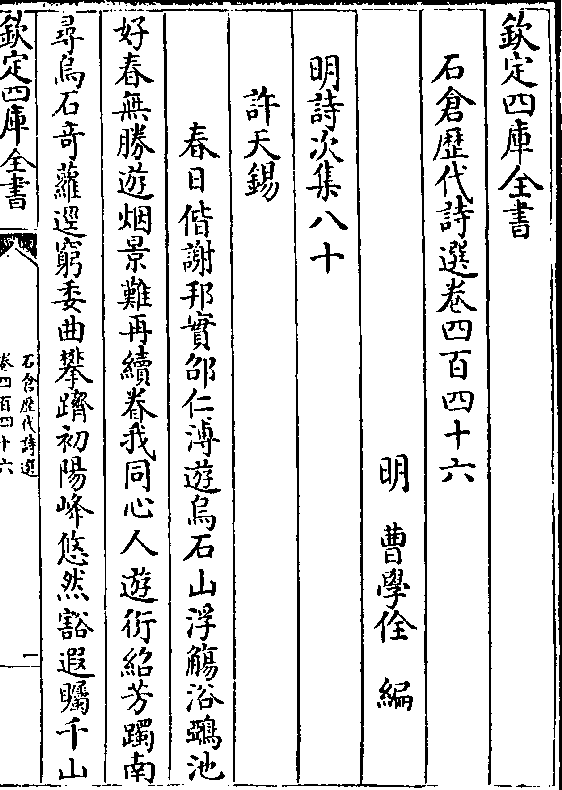 欽定四庫全書
石倉歴代詩選卷四百四十六
明　曹學佺　編
明詩次集八十
許天錫
春日偕謝邦實邵仁溥遊烏石山浮觴浴鵶池
好春無勝遊烟景難再續眷我同心人遊衍紹芳躅南
尋烏石竒蘿逕窮委曲攀躋初陽峰悠然豁遐矚千山
欽定四庫全書
石倉歴代詩選
卷四百四十六
一